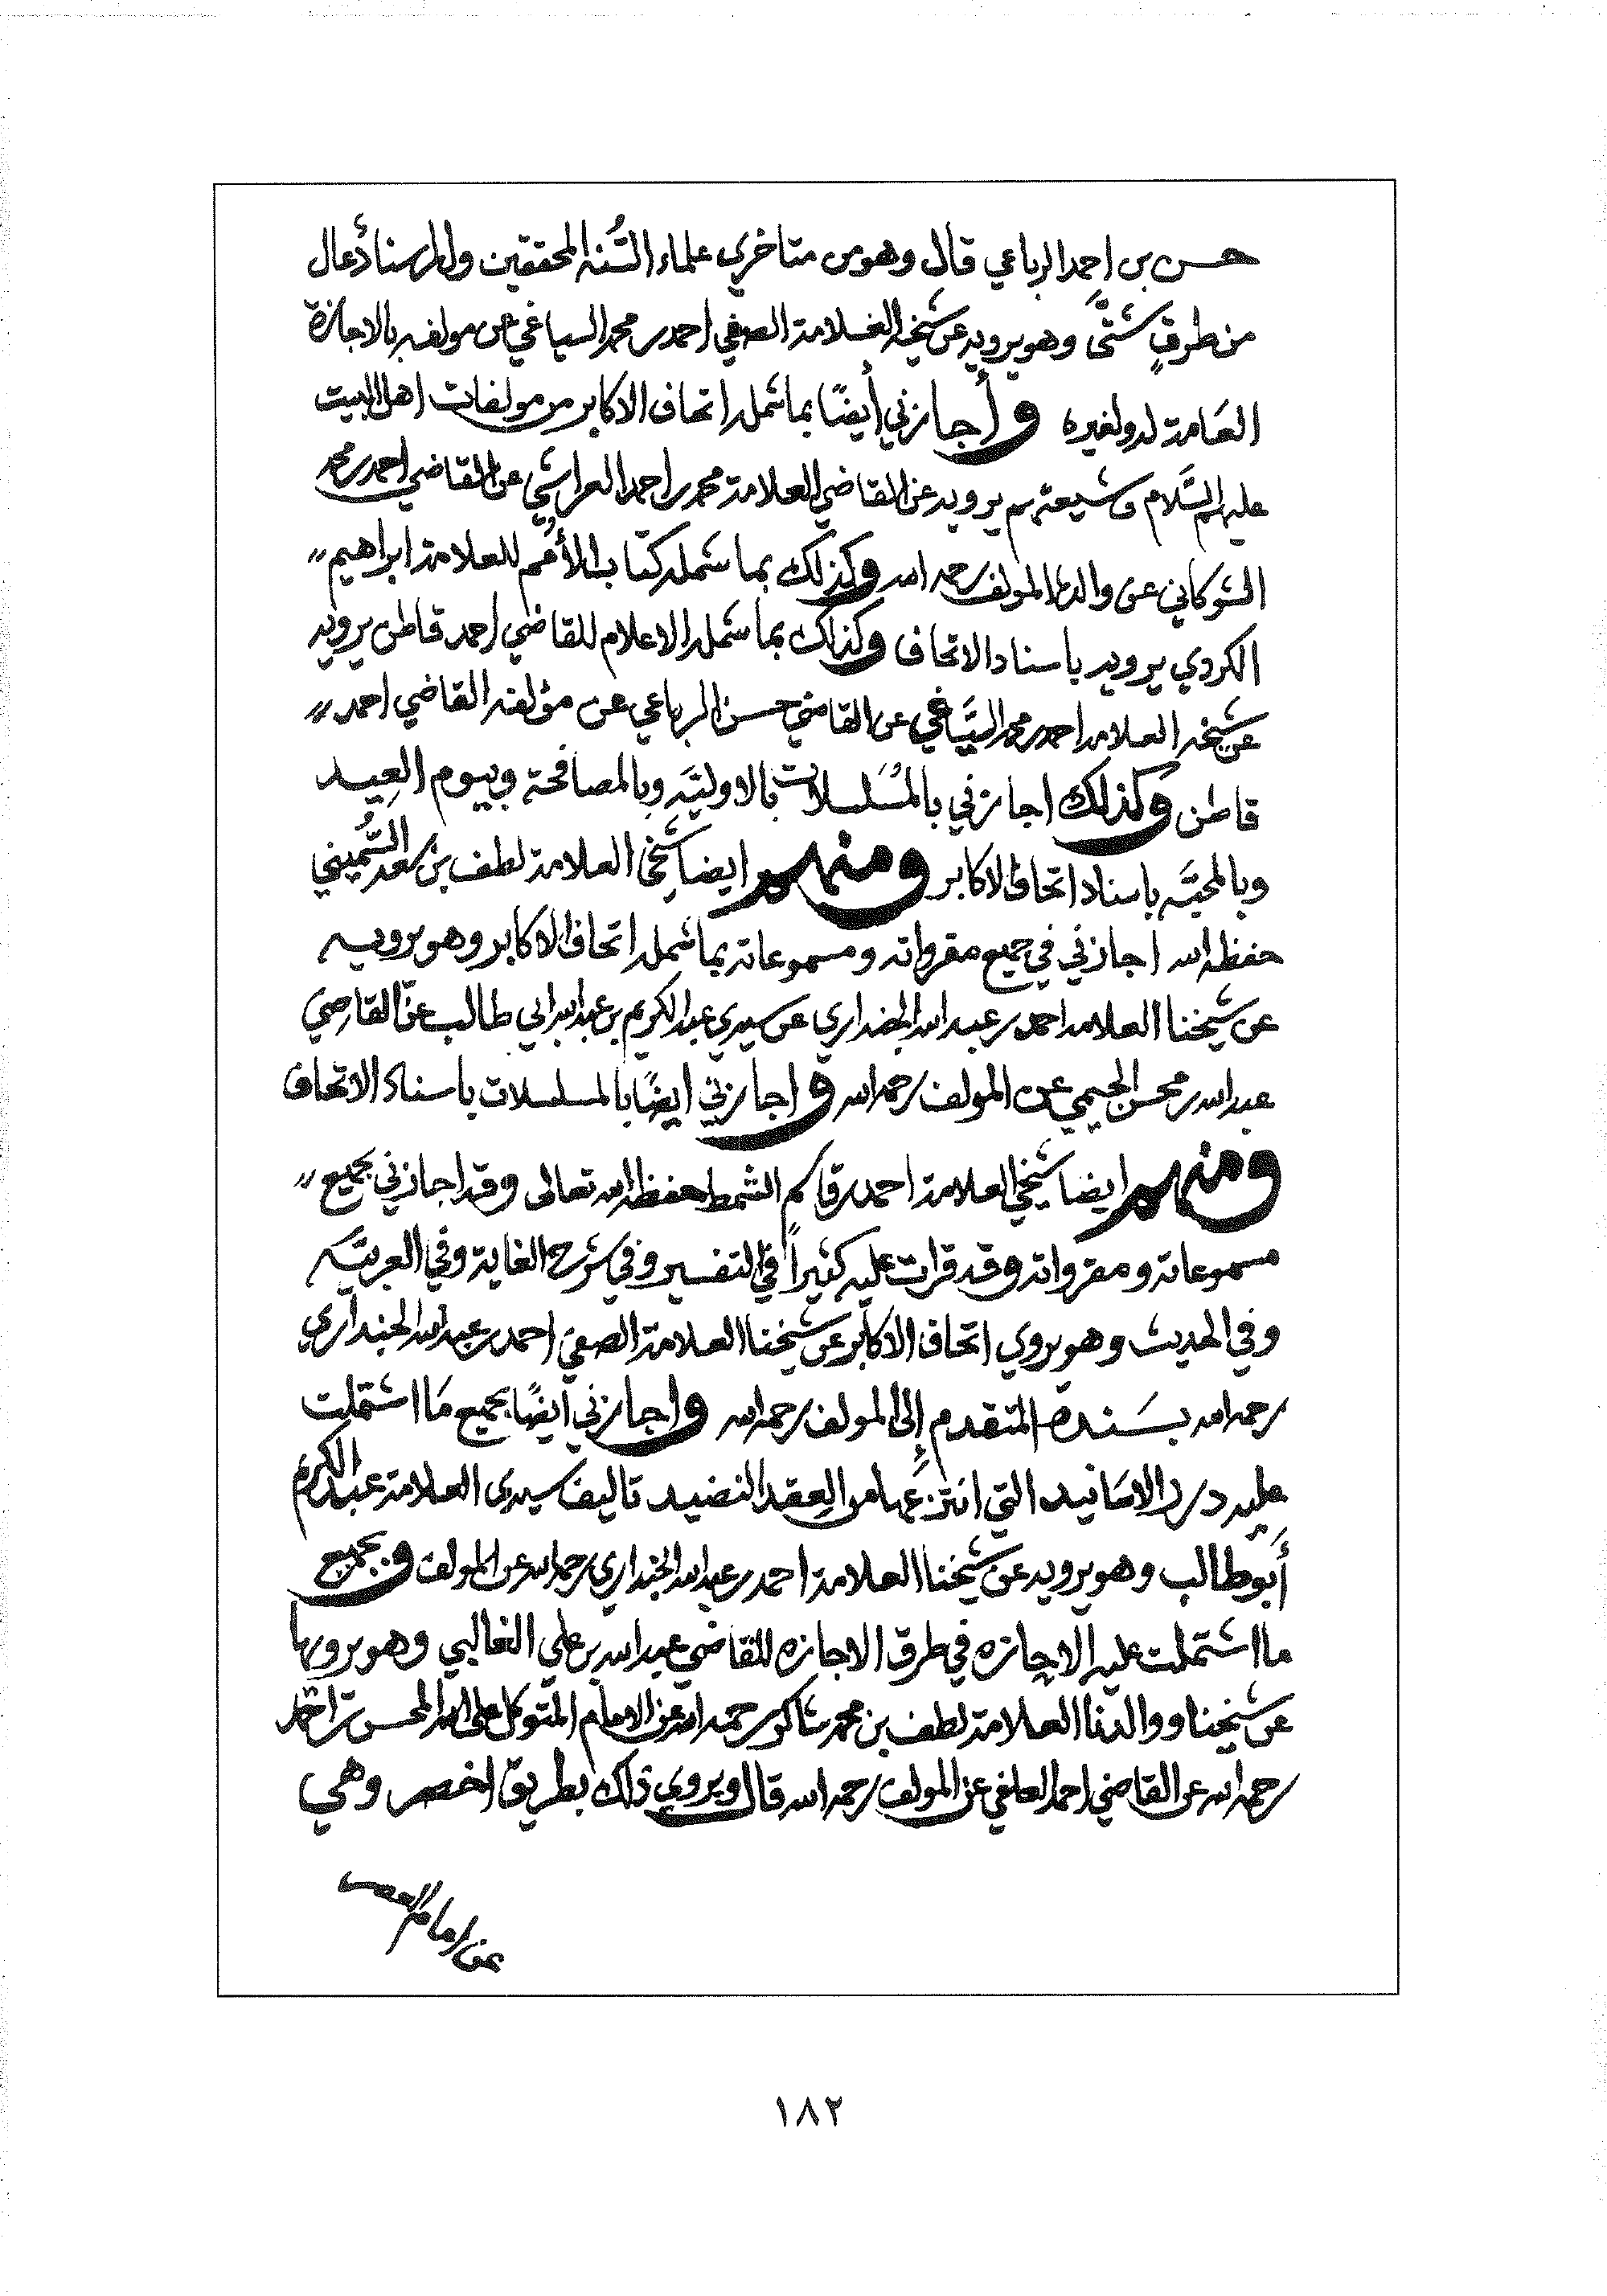 حسن بن احمد الرباعي قال وهو من متاخري علماء السُّنه المحققين وله اسنادٌ عال
من طرقٍ شتَّى وهو يرويه عن شيخه العلامة الصفي احمد بن محمد السياغي عن مولفه بالاجازة
العَامة له ولغيره وأجازني أيضًا بما شمله اتحاف الاكابر من مولفات اهل البيت
عليهم السَّلام وشيعتهم يرويه عن القاضي العلامة محمد بن احمد العراشي عن القاضي احمد بن محمد
الشوكاني عن والده المولف رحمه الله وكذلك بما شمله كتاب الأُمَم للعلامة ابراهيم
الكردي يرويه باسناد الاتحاف وكذلك بما شمله الاعلام للقاضي احمد قاطن يرويه
عن شيخه العلامه احمد بن محمد السَّيَاغي عن القاضي حسن الرباعي عن مؤلفه القاضي احمد
قاطن وكذلك اجازني بالمُسَلسلات بالاوليَّه وبالمصافحة وبيوم العِيد
وبالمحبَّه باسناد اتحاف الاكابر ومنهم ايضا شيخي العلامة لطف بن سعد السُّميني
حفظه الله اجازني في جميع مقرواته ومسموعاته بما شمله اتحاف الاكابر وهو يرويه
عن شيخنا العلامه احمد بن عبد الله الجنداري عن سيدي عبد الكريم بن عبد الله ابي طالب عن القاضي
عبد الله بن محسن الحيمي عن المولف رحمه الله واجازني ايضًا بالمسلسلات باسناد الاتحاف
ومنهم ايضا شيخي العلامة احمد بن قاسم الشمط حفظه الله تعالى وقد اجازني بجميع
مسموعاته ومقرواته وقد قرات عليه كثيراً في التفسير وفي شرح الغاية وفي العربيَّه
وفي الحديث وهو يروي اتحاف الاكابر عن شيخنا العلامة الصفي احمد بن عبد الله الجنداري
رحمه الله بسَنده المتقدم إلى المولف رحمه الله واجازني ايضًا بجميع مَا اشتملت
عليه درر الاسَانيد التي انتزعها من العِقد النضيد تاليف سيدي العلامة عبد الكريم
أبو طالب وهو يرويه عن شيخنا العلامة احمد بن عبد الله الجنداري رحمه الله عن المولف وبجميع
ما اشتملت عليه الاجازه في طرق الاجازه للقاضي عبد الله بن علي الغالبي وهو يرويها
عن شيخنا ووالدنا العلامة لطف بن محمد شاكر رحمه الله عن الامام المتوكل على الله المحسن بن احمد
رحمه الله عن القاضي احمد العلفي عن المولف رحمه الله قال ويروي ذلك بطريق اخصر وهي
عن امام العصر
١٨٢